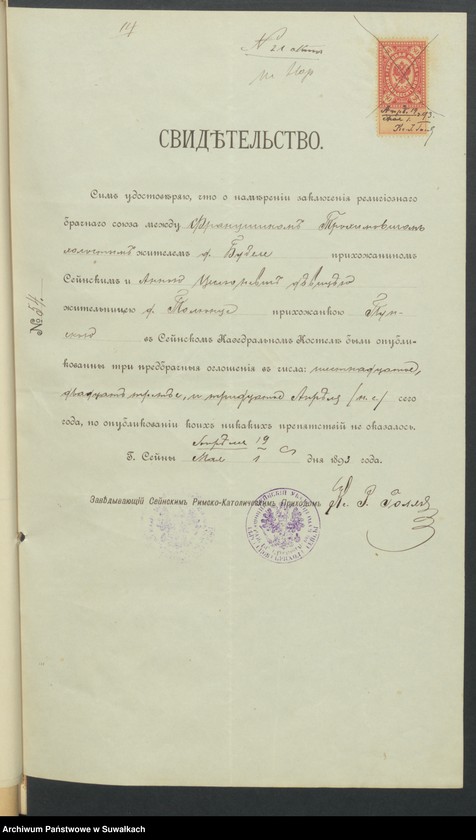 № 21
СВИДѢТЕЛЬСТВО.
Симъ удостовѣряю, что о намѣреніи заключенія религіознаго
брачнаго союза между Францишкомъ
жителемъ д. прихожаниномъ
Сейнскимъ и Анною дѣвицею
жительницею д. прихожанкою Пун-
скою въ Сейнскомъ Каѳедральномъ Костелѣ были опубли-
кованы три предбрачныя оглошенія въ числа: шестнадцатое,
двадцать третье, и тридцатое Апрѣля (н. с.) сего
года, по опубликованіи коихъ никакихъ препятствій не оказалось.
Апрѣля 19
Г. Сейны Мая 1 дня 1893 года.
Завѣдывающій Сейнскимъ Римско-Католическимъ Приходомъ
№ 54.
Archiwum Państwowe w Suwałkach